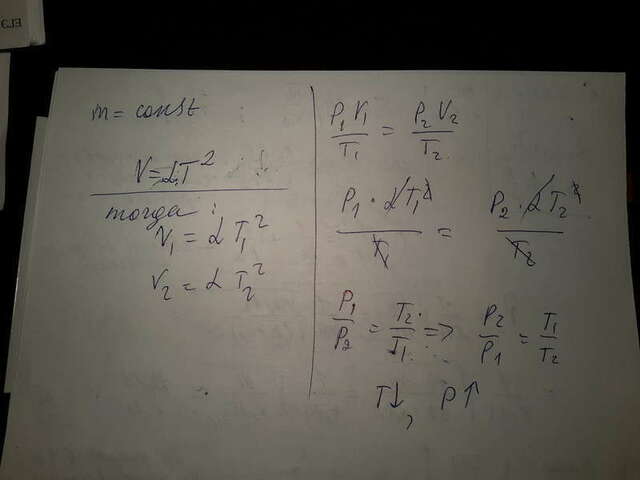 m = const
V = αT²
тогда:
V₁ = αT₁²
V₂ = αT₂²
P₁V₁/T₁ = P₂V₂/T₂
P₁·αT₁²/T₁ = P₂·αT₂²/T₂
P₁/P₂ = T₂/T₁ => P₂/P₁ = T₁/T₂
T↓, P↑
ЕГЭ